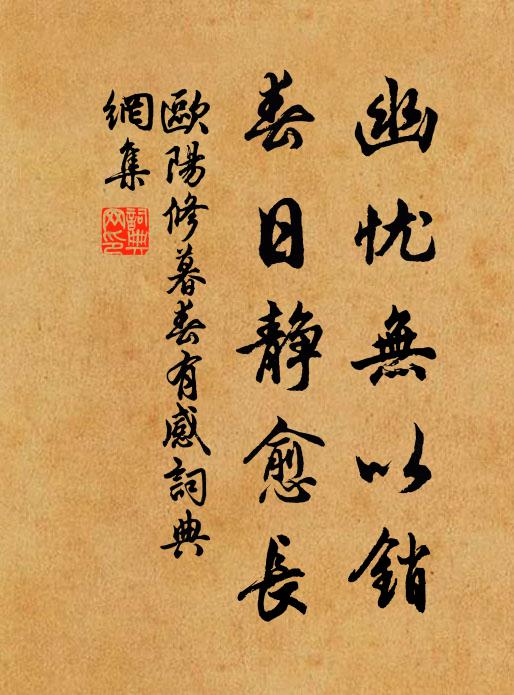 幽忧無以銷
春日静愈長
歐陽修暮春有感詞典
網集
詞典
网印